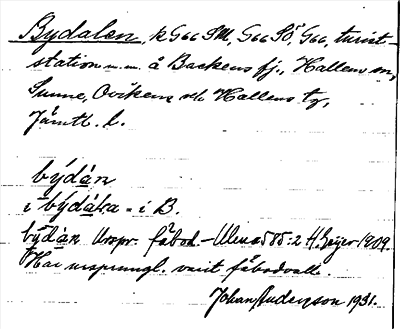 Bydalen, k G66 SM, G66 SÖ, G66, turist-
station m.m. å Backens fj., Hallens sn,
Sunne, Ovikens och Hallens tg,
Jämtl. l.
býdán
i býdáḷa = i B.
býdán Urspr. fäbod. - Uleus 585:2 H. Geijer 1909.
Har ursprungl. varit fäbodvall.
Johan Anderzson 1931.